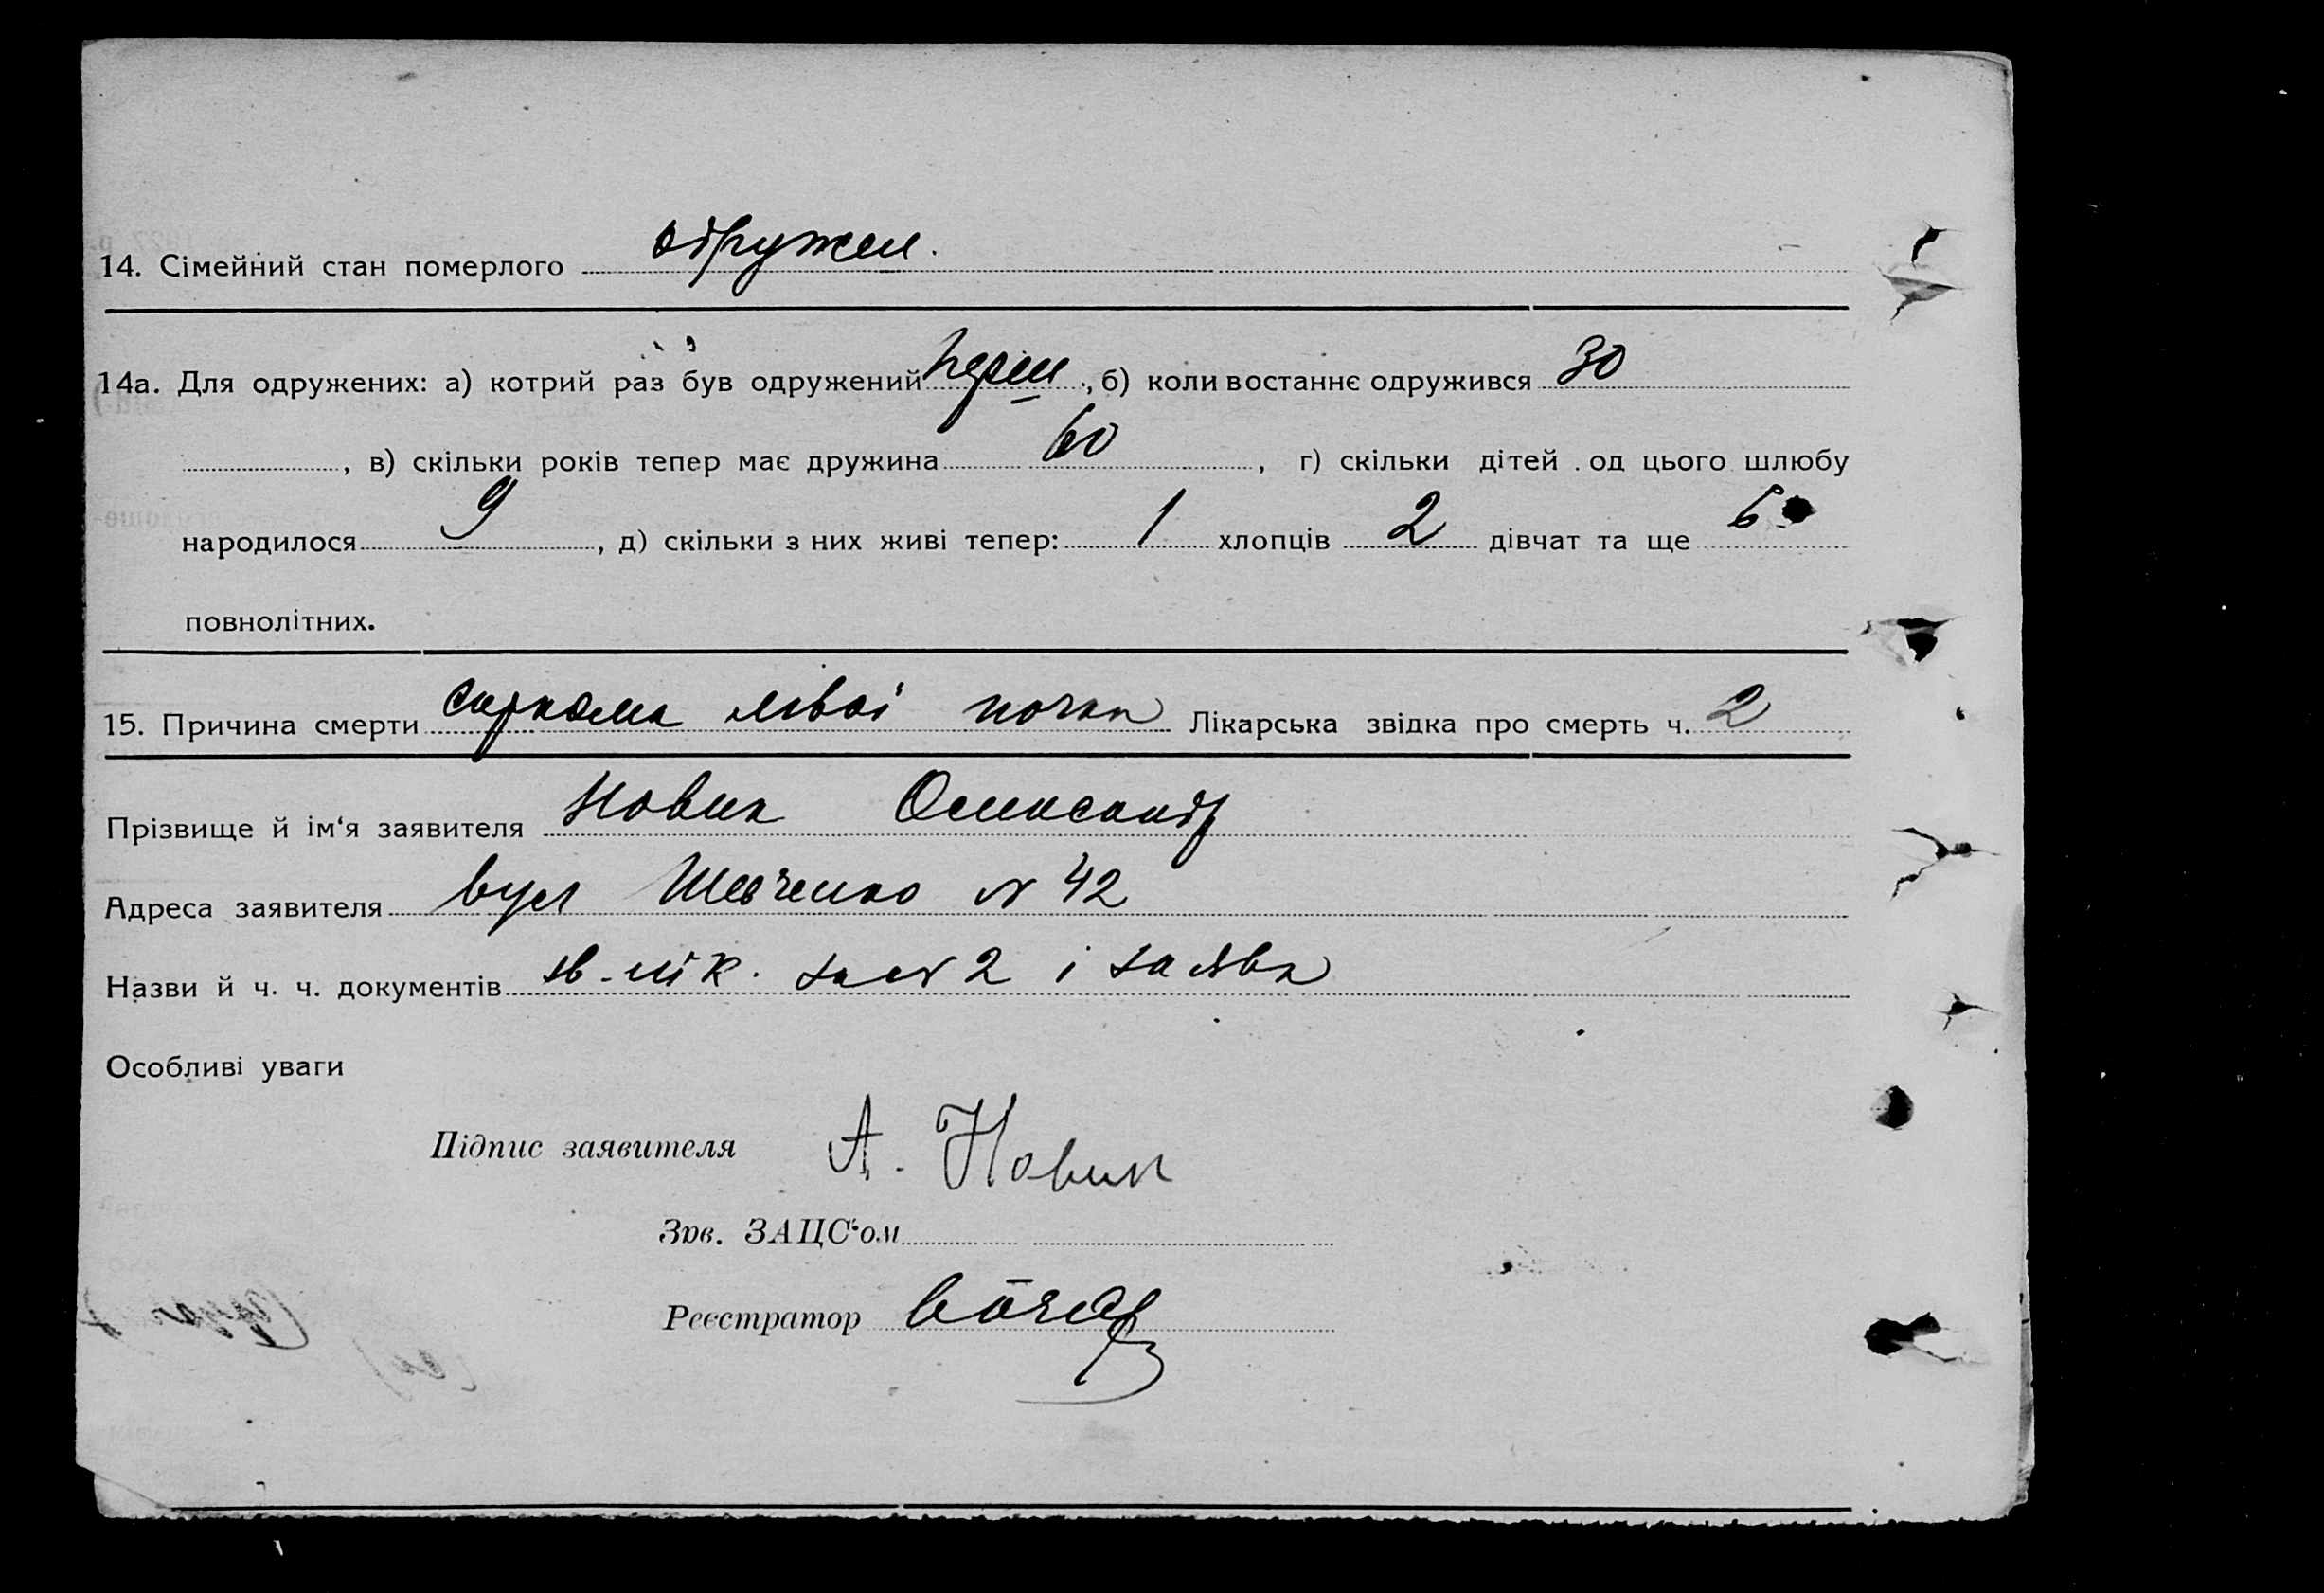 14. Сімейний стан померлого одружен.
14а. Для одружених: а) котрий раз був одружений перш, б) коли востаннє одружився 30
, в) скільки років тепер має дружина 60, г) скільки дітей од цього шлюбу
народилося 9, д) скільки з них живі тепер: 1 хлопців 2 дівчат та ще 6
повнолітних.
15. Причина смерти саркома лівої почки Лікарська звідка про смерть ч. 2
Прізвище й ім‘я заявителя Новик Олександр
Адреса заявителя вул Шевченко № 42
Назви й ч. ч. документів зв. лік. за № 2 і заява
Особливі уваги
Підпис заявителя А. Новик
Зав. ЗАЦС‘ом
Реєстратор